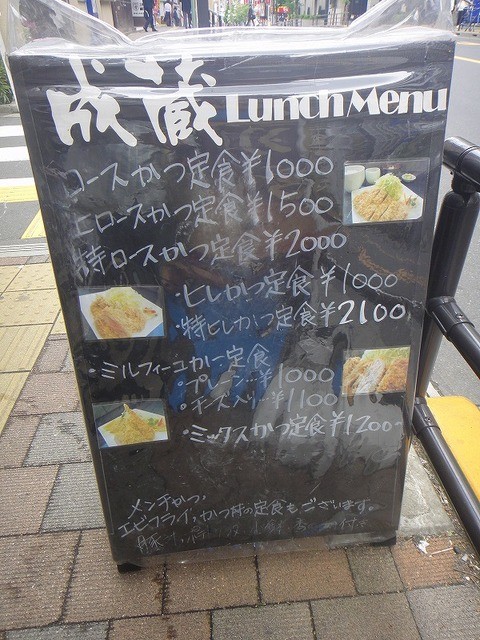 成蔵 Lunch Menu
ロースかつ定食¥1000
上ロースかつ定食¥1500
特ロースかつ定食¥2000
・ヒレかつ定食¥1000
・特ヒレかつ定食¥2100
・ミルフィーユかつ定食
○プレーン…¥1000
○チーズ入り…¥1100
・ミックスかつ定食¥1200
メンチかつ、
エビフライ、かつ丼の定食もございます。